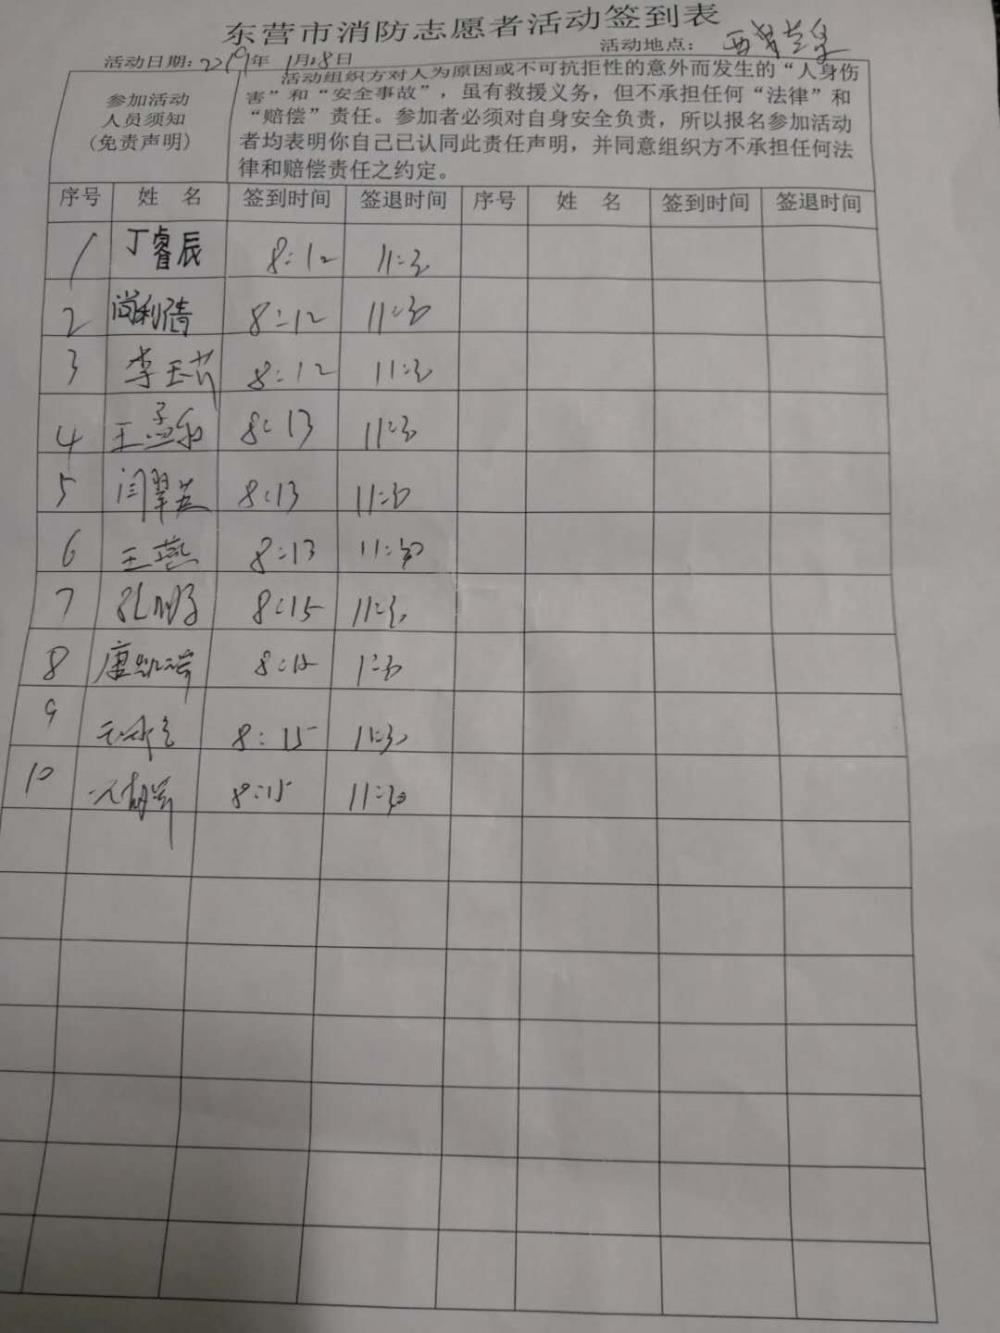 东营市消防志愿者活动签到表
活动日期：2019年 1月28日 活动地点：
参加活动
人员须知
(免责声明)
活动组织方对人为原因或不可抗拒性的意外而发生的“人身伤
害”和“安全事故”，虽有救援义务，但不承担任何“法律”和
“赔偿”责任。参加者必须对自身安全负责，所以报名参加活动
者均表明你自己已认同此责任声明，并同意组织方不承担任何法
律和赔偿责任之约定。
序号 姓 名 签到时间 签退时间 序号 姓 名 签到时间 签退时间
1 丁睿辰 8:12 11:30
2 尚利倩 8:12 11:30
3 李玉芹 8:12 11:30
4 王孟和 8:13 11:30
5 闫翠英 8:13 11:30
6 王燕 8:13 11:30
7 8:15 11:30
8 唐凯 8:15 1:30
9 8:15 11:30
10 8:15 11:30